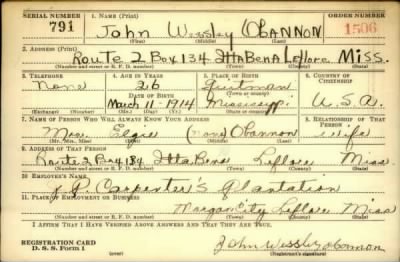 SERIAL NUMBER 1. NAME (Print) ORDER NUMBER
791 John Wessley OBANNON 1506
(First) (Middle) (Last)
2. ADDRESS (Print)
Route 2 Box 134 Itta Bena Leflore Miss.
(Number and street or R. F. D. number) (Town) (County) (State)
3. TELEPHONE 4. AGE IN YEARS 5. PLACE OF BIRTH 6. COUNTRY OF CITIZENSHIP
None 26 Quitman
DATE OF BIRTH (Town or county)
March 11 - 1914 Mississippi U.S.A.
(Exchange) (Number) (Mo.) (Day) (Yr.) (State or country)
7. NAME OF PERSON WHO WILL ALWAYS KNOW YOUR ADDRESS 8. RELATIONSHIP OF THAT PERSON
Mrs. Elgie (none) Obannon wife
(Mr., Mrs., Miss) (First) (Middle) (Last)
9. ADDRESS OF THAT PERSON
Route 2 Box 134 Itta Bena Leflore Miss
(Number and street or R. F. D. number) (Town) (County) (State)
10. EMPLOYER'S NAME
J. P. Carpenter's Plantation
11. PLACE OF EMPLOYMENT OR BUSINESS
Morgan City Leflore Miss
(Number and street or R. F. D. number) (Town) (County) (State)
I AFFIRM THAT I HAVE VERIFIED ABOVE ANSWERS AND THAT THEY ARE TRUE.
REGISTRATION CARD
D. S. S. Form 1 John Wessley obannon
(Registrant's signature)